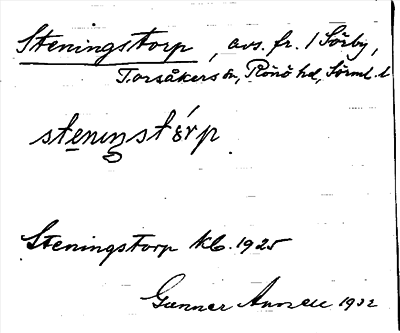 Steningstorp, avs. fr. 1 Sörby,
Torsåkers sn, Rönö hd, Sörml. l
Steningstorp kb. 1925
Gunnar 1932